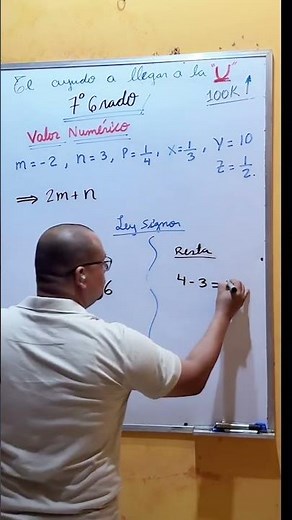 Te ayudo a llegar a la "U"
7° Grado
100K ↑
Valor Numérico
m=-2, n=3, P=1/4, X=1/3, Y=10
Z=1/2.
⇒ 2m+n
Ley Signos
Resta
6
4-3=